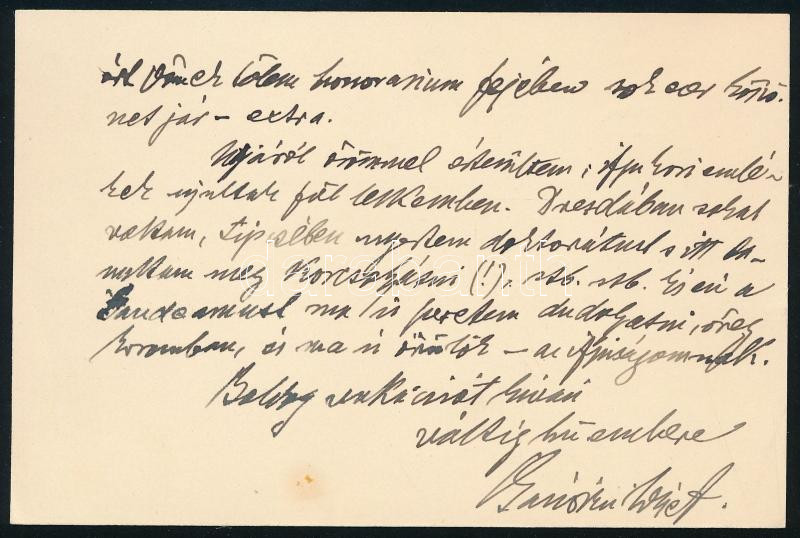 ért Önek tőlem honorarium fejében sokezer köszö-
net jár – extra.
Ujáról örömmel értesültem; ifjukori emlé-
kek ujultak föl lelkemben. Dresdában sokat
voltam, Lipcsében nyertem doktorátust s itt ta-
nultam meg Korcsolyázni (!), stb. stb. És én a
Gaudeamust ma is szeretem dudolgatni, öreg
koromban, és ma is örülök – az ifjuságomnak.
Boldog vakációt kiván
váltig hű embere
darabanth